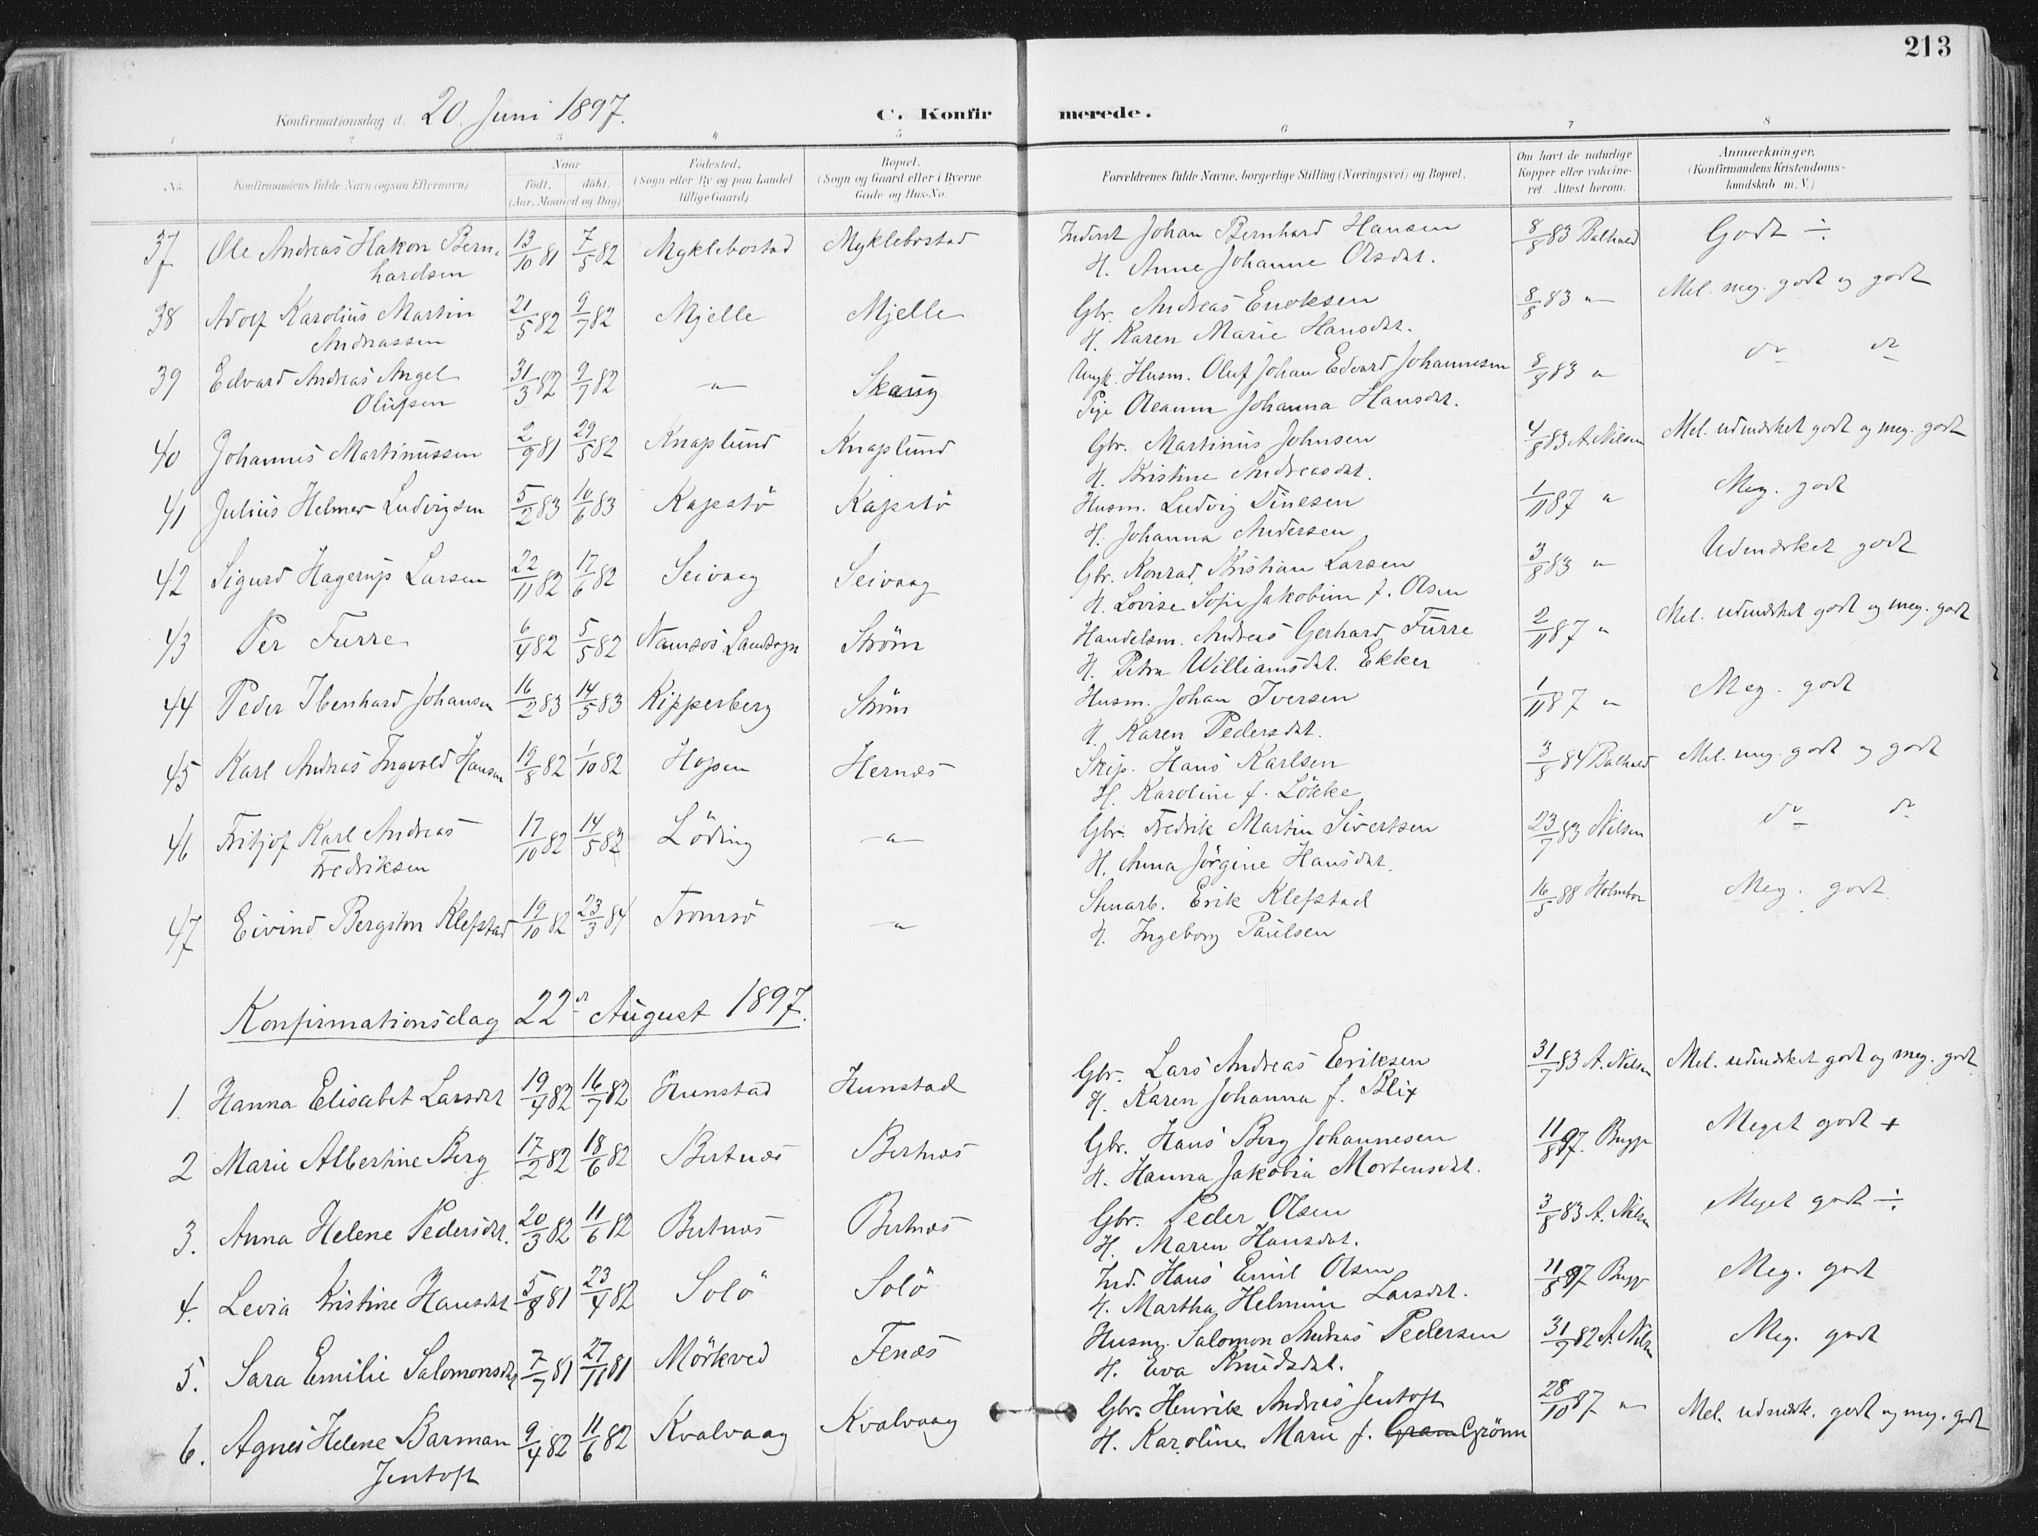 213
Konfirmationsdag d. 20. Juni 1897.
C. Konfirmerede.
1 2 3 4 5 6 7 8
No. Konfirmandens fulde Navn (ogsaa Efternavn) Naar født, døbt. (Aar, Maaned og Dag) Fødested. (Sogn eller By og paa Landet tillige Gaard) Bopæl. (Sogn og Gaard eller i Byerne Gade og Hus-No. Forældrenes fulde Navne, borgerlige Stilling (Næringsvei) og Bopæl. Om havt de naturlige Kopper eller vakcineret. Attest herom. Anmærkninger. (Konfirmandens Kristendomskundskab m. V.)
37 Ole Andreas Hakon Bern- 13/10 81 7/5 82 Myklebostad Myklebostad Inderst Johan Bernhard Hansen 8/8 83 Balhald Godt ÷
hardsen H. Anne Johanne Olsdat.
38 Adolf Karolius Martin 21/5 82 9/7 82 Mjelle Mjelle Gbr. Andreas Enoksen 8/8 83 " Mel. meg. godt og godt
Andreassen H. Karen Marie Hansdat.
39 Edvard Andreas Angel 31/3 82 9/7 82 " Skaug Ungk. Husm. Oluf Johan Edvard Johannesen 8/8 83 " do do
Olufsen Pige Oleanna Johanna Hansdat.
40 Johannes Martinussen 2/9 81 29/5 82 Knaplund Knaplund Gbr. Martinus Johnsen 4/8 83 A. Nilsen Mel. udmærket godt og meg. godt
H. Kristine Andreasdat.
41 Julius Helmer Ludvigsen 5/2 83 10/6 83 Kapstö Kapstö Husm. Ludvig Dinesen 1/11 87 " Meg. godt
H. Johanna Andersen
42 Sigurd Hagerup Larsen 22/11 82 17/6 82 Seivaag Seivaag Gbr. Konrad Kristian Larsen 3/8 83 " Udmærket godt
H. Lovise Sofie Jakobine f. Olsen
43 Per Furre 6/4 82 5/5 82 Namsos Landsogn Ström Handelsm. Andreas Gerhard Furre 2/11 87 " Mel. udmærket godt og meg. godt
H. Petra Williamsdat. Ekker
44 Peder Ibenhard Johansen 16/2 83 14/5 83 Kipperberg Ström Husm. Johan Iversen 1/11 87 " Meg. godt
H. Karen Pedersdat.
45 Karl Andreas Ingvald Hansen 19/8 82 1/10 82 Hopen Hernæs Skip. Hans Karlsen 3/8 84 Balhald Mel. meg. godt og godt
H. Karoline f. Lökke
46 Fritjof Karl Andreas 17/10 82 14/5 82 Löding " Gbr. Fredrik Martin Sivertsen 23/7 83 Nilsen do do
Fredriksen H. Anna Jörgine Hansdat.
47 Eivind Bergston Klefstad 19/10 82 23/3 84 Tromsö " Stenarb. Erik Klefstad 16/5 88 Holmboe Meg. godt
H. Ingeborg Paulsen
Konfirmationsdag 22de August 1897.
1. Hanna Elisabet Larsdat 19/4 82 16/7 82 Hunstad Hunstad Gbr. Lars Andreas Eriksen 31/7 83 A. Nilsen Mel. udmærket godt og meg. godt
H. Karen Johanna f. Blix
2 Marie Albertine Berg 17/2 82 18/6 82 Bertnæs Bertnæs Gbr. Hans Berg Johannesen 11/8 97. Bugge Meget godt +
H. Hanna Jakobia Mortensdat.
3. Anna Helene Pedersdat. 20/3 82 11/6 82 Bertnæs Bertnæs Gbr. Peder Olsen 3/8 83 A. Nilsen Meget godt ÷
H. Maren Hansdat.
4. Levia Kristine Hansdat 5/8 81 23/4 82 Solö Solö Ind. Hans Emil Olsen 11/8 97 Bugge Meg. godt
H. Martha Helmine Larsdat.
5. Sara Emilie Salomonsdat 7/7 81 27/11 81 Mörkved Fenæs Husm. Salomon Andreas Pedersen 31/7 82 A. Nilsen Meg. godt
H. Eva Knudsdat.
6. Agnes Helene Barman 9/4 82 11/6 82 Kvalvaag Kvalvaag Gbr. Henrik Andreas Jentoft 28/10 87 " Mel. udmærk. godt og meg. godt
Jentoft H. Karoline Marie f. Gram Grönn